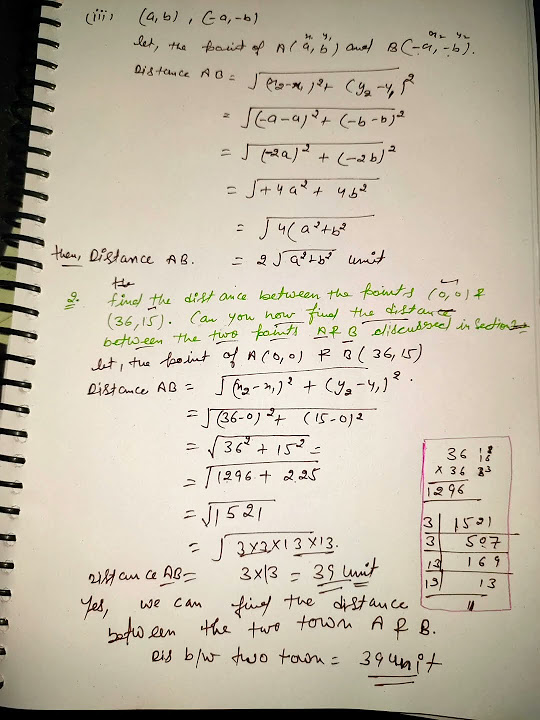 (iii) (a, b) , (-a, -b)
x₁ y₁ x₂ y₂
let, the point of A(a, b) and B(-a, -b).
Distance AB = √(x₂-x₁)²+ (y₂-y₁)²
= √(-a-a)² + (-b-b)²
= √(-2a)² + (-2b)²
= √+4a² + 4b²
= √4(a²+b²
then, Distance AB. = 2√a²+b² unit
the
2. find the distance between the points (0,0) &
(36,15). Can you now find the distance
between the two points A & B discussed in Section
let, the point of A(0,0) & B(36,15)
Distance AB = √(x₂-x₁)² + (y₂-y₁)².
= √(36-0)² + (15-0)²
= √36² + 15² =
= √1296 + 225
= √1521
= √3×3×13×13.
Distance AB = 3×13 = 39 unit
Yes, we can find the distance
between the two town A & B.
Dis b/w two town = 39 unit
36
× 36
1296
3 | 1521
3 | 507
13 | 169
13 | 13